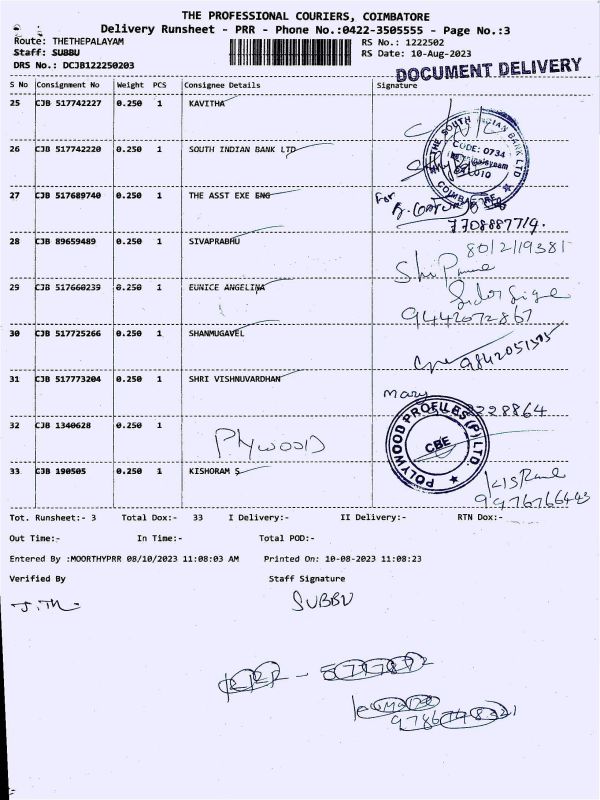 THE PROFESSIONAL COURIERS, COIMBATORE
Delivery Runsheet - PRR - Phone No.:0422-3505555 - Page No.:3
Route: THETHEPALAYAM RS No.: 1222502
Staff: SUBBU RS Date: 10-Aug-2023
DRS No.: DCJB122250203
DOCUMENT DELIVERY
S No Consignment No Weight PCS Consignee Details Signature
25 CJB 517742227 0.250 1 KAVITHA
26 CJB 517742220 0.250 1 SOUTH INDIAN BANK LTD
THE SOUTH INDIAN BANK LTD
CODE: 0734
COIMBATORE
27 CJB 517689740 0.250 1 THE ASST EXE ENG
For
7708887719.
28 CJB 89659489 0.250 1 SIVAPRABHU
29 CJB 517660239 0.250 1 EUNICE ANGELINA
9442072867
30 CJB 517725266 0.250 1 SHANMUGAVEL
31 CJB 517773204 0.250 1 SHRI VISHNUVARDHAN
Mary
32 CJB 1340628 0.250 1
PlywooD
POLYWOOD PROFILES (P) LTD.
CBE
33 CJB 190505 0.250 1 KISHORAM S
Tot. Runsheet:- 3 Total Dox:- 33 I Delivery:- II Delivery:- RTN Dox:-
Out Time:- In Time:- Total POD:-
Entered By :MOORTHYPRR 08/10/2023 11:08:03 AM Printed On: 10-08-2023 11:08:23
Verified By Staff Signature
SUBBU